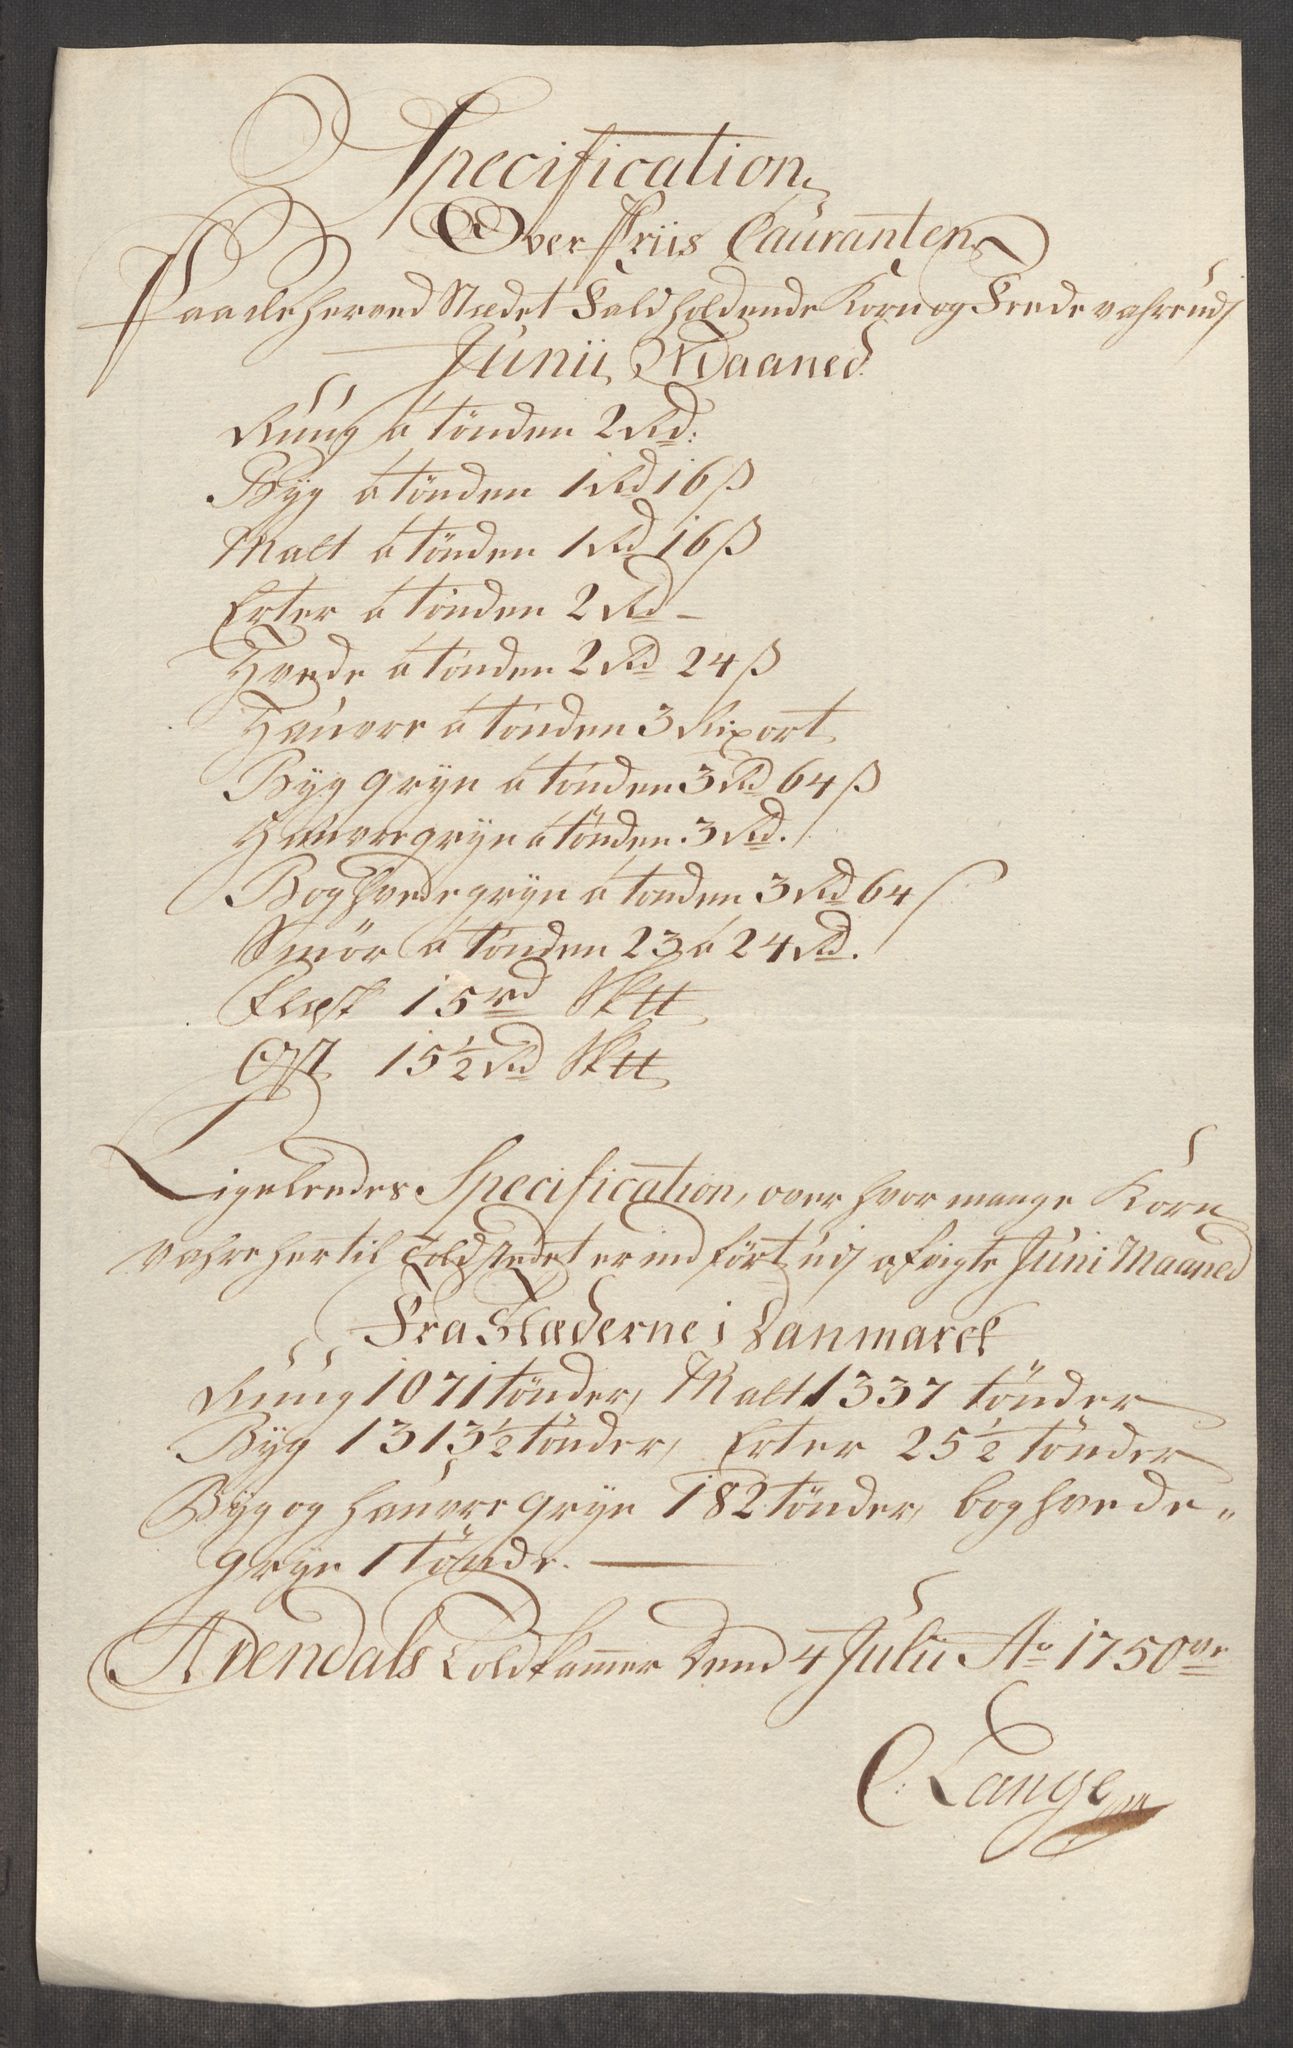 Specification
Over Priis Cauranten
Paa de her ved Stædet Fald holdende Korn og Feede vahre udj
Junii Maaned
Rüug á tönden 2 Rd:
Byg á tönden 1 Rd 16 ß
Malt á tönden 1 Rd 16 ß
Erter á tönden 2 Rd –
Hvede á tönden 2 Rd 24 ß
Hauvre á tönden 3 Rixort
Byg gryn á tönden 3 Rd 64 ß
Hauvregryn á tönden 3 Rd.
Boghvedegryn á tönden 3 Rd 64 ß
Smör á tönden 23 á 24 Rd.
Flesk 15 rd Sktt
Ost 15½ Rd Sktt
Ligeleedes Specification, over hvor mange Korn
vahre her til Toldstedet er indfört udj afvigte Juni Maaned
Fra Stæderne i Danmarck
Rüug 1071 tönder, Malt 1337 tönder
Byg 1313½ tönder, Erter 25½ tönder
Byg og hauvre gryn 182 tönder, boghvede
gryn 1 tönde.
Arendals Toldkammer Dend 4 Julii Ao 1750ve
C: Lange